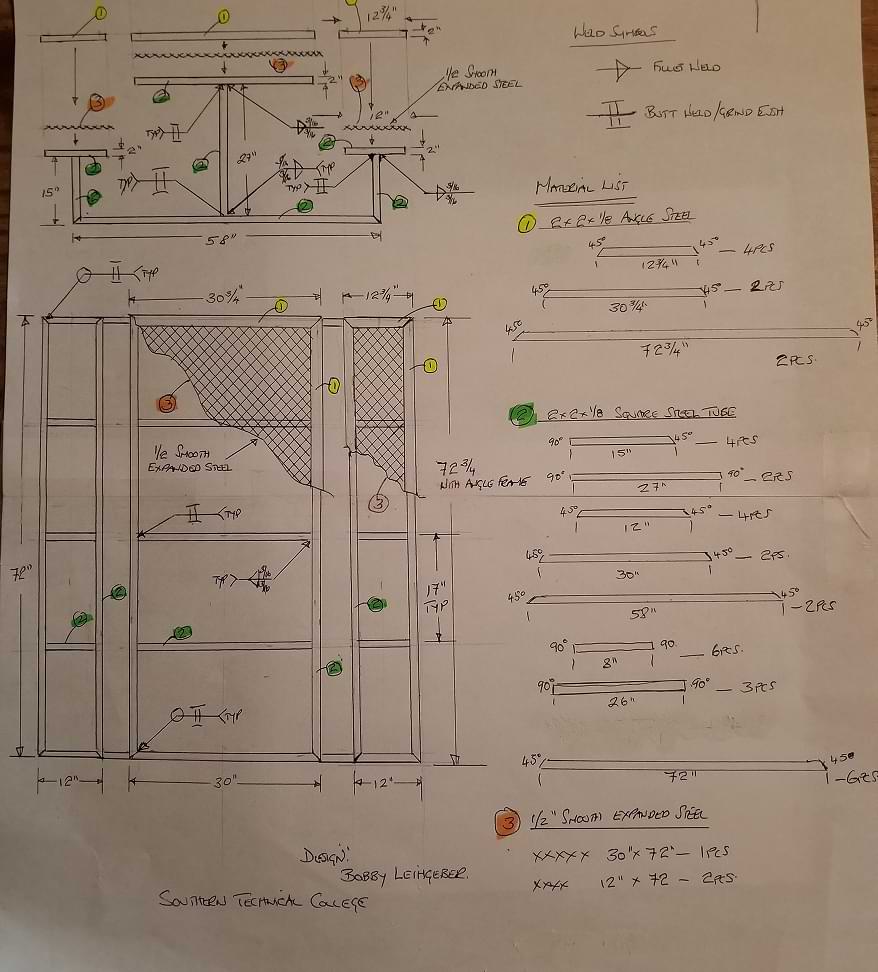 1
1
1
12 3/4"
2"
3
3
3
2
2"
1/2 SMOOTH
EXPANDED STEEL
12"
TYP
3/16
3/16
2
2"
2
2
27"
2
TYP
TYP
3/16
TYP
3/16
3/16
15"
2
2
2
58"
TYP
30 3/4"
1
12 3/4"
1
1
1
3
1/2 SMOOTH
EXPANDED STEEL
3
72 3/4
WITH ANGLE FRAME
TYP
TYP
72"
2
2
17"
TYP
2
2
2
TYP
12"
30"
12"
DESIGN:
BOBBY LEIHGEBER.
SOUTHERN TECHNICAL COLLEGE
WELD SYMBOLS
FILLET WELD
BUTT WELD/GRIND FLUSH
MATERIAL LIST
1 2 x 2 x 1/8 ANGLE STEEL
45° 45° — 4PCS
12 3/4"
45° 45° — 2PCS
30 3/4"
45° 45°
72 3/4"
2PCS.
2 2 x 2 x 1/8 SQUARE STEEL TUBE
90° 45° — 4PCS
15"
90° 90° — 2PCS
27"
45° 45° — 4PCS
12"
45° 45° — 2PS.
30"
45° 45°
58" — 2PCS
90° 90. — 6PCS.
8"
90° 90° — 3PCS
26"
45° 45°
72" — 6PCS
3 1/2" SMOOTH EXPANDED STEEL
XXXXX 30" x 72" — 1PCS
XXXX 12" x 72 — 2PCS.